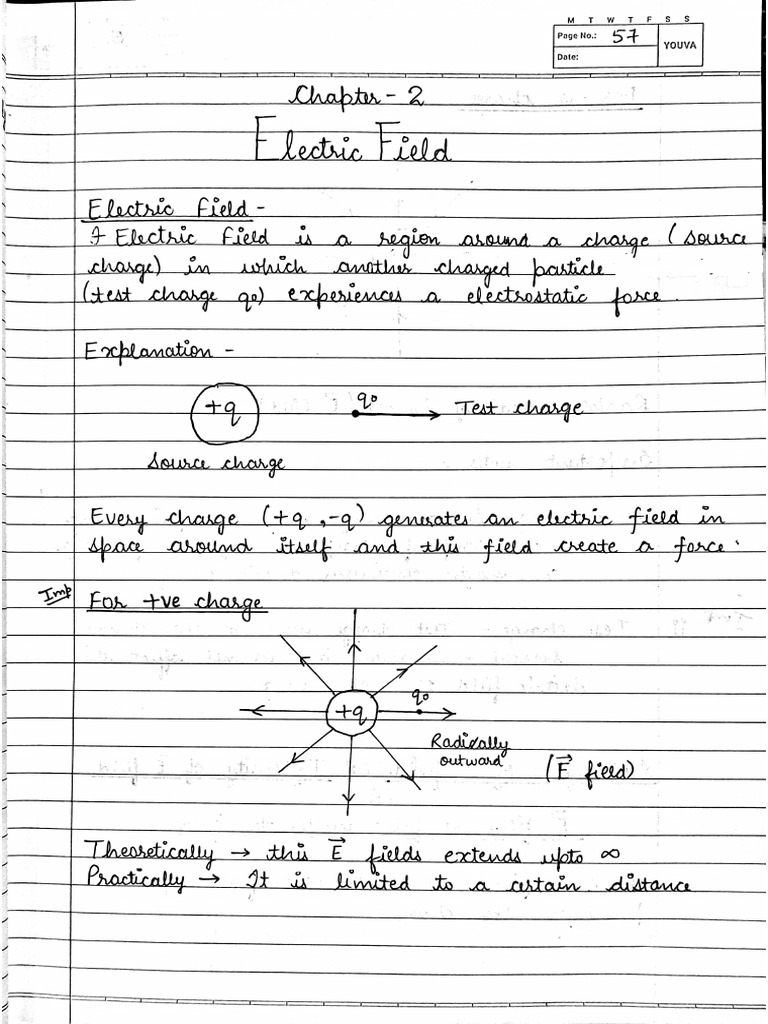 M T W T F S S
Page No.: 57
Date:
YOUVA
Chapter - 2
Electric Field
Electric Field -
Electric Field is a region around a charge (source
charge) in which another charged particle
(test charge q₀) experiences a electrostatic force.
Explanation -
+q
q₀
Test charge
Source charge
Every charge (+q, -q) generates an electric field in
space around itself and this field create a force.
Imp
For +ve charge
+q
q₀
Radically
outward
(E⃗ field)
Theoretically → this E⃗ fields extends upto ∞
Practically → It is limited to a certain distance